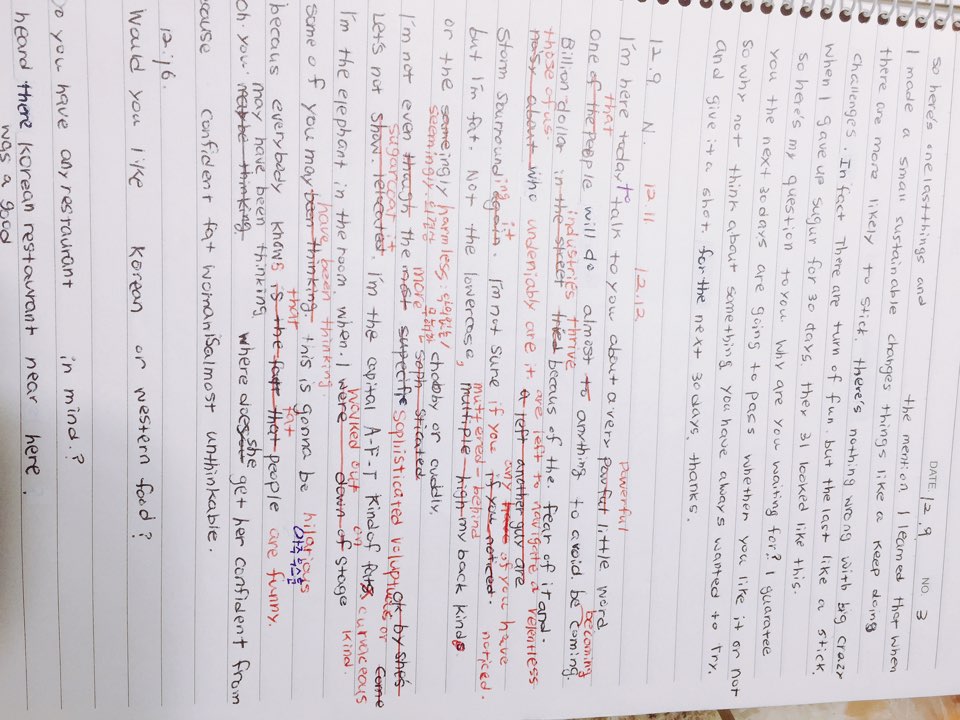 DATE 12.9 NO. 3
so here's one last things and the mention I learned that when
I made a small sustainable changes things like a keep doing
there are more likely to stick. there's nothing wrong with big crazy
challenges. In fact There are turn of fun. but the last like a stick.
when I gave up sugur for 30 days, they 31 looked like this.
so here's my question to you. Why are you waiting for? I guaratee
you the next 30 days are going to pass whether you like it or not
so why not think about something you have always wanted to try.
and give it a shot for the next 30 days. thanks.
12.9 N. 12.11 12.12
I'm here today to talk to you about a very powfut little word
that powerful
one of the people will do almost to anything to avoid. be coming
becoming
Billion dollar in the skeet tried becaus of the. fear of it and.
industries thrive
those of us
noisy about who undeniably are it a left another guy are
are left to navigate a relentless
Storm surrounding again. I'm not sure if you if you noticed.
it any of you have noticed.
but I'm fat. Not the lowercase, multiple high my back kinds
muttered-behind
or the sameingly harmless. chobby or cuddly.
seemingly
I'm not even though the most superfic soph sticated ok by she's
more sophisticated voluptuous or curvaceous
Let's not show. telecated. I'm the capital A-F-T kind of fats come
sugarcoat it kind.
I'm the elephant in the room when. I were down of stage
walked out on
some of you may been thinking this is gonna be hilarious
have been thinking 아주 웃김
becaus everybody knows is the fatt that people are funny.
that fat
och you maybe thinking where does get her confident from
may have been thinking she
ecause confident fat woman is almost unthinkable.
12.16.
Would you like korean or western food?
Do you have any restaurant in mind?
heard there korean restaurant near here.
was a good